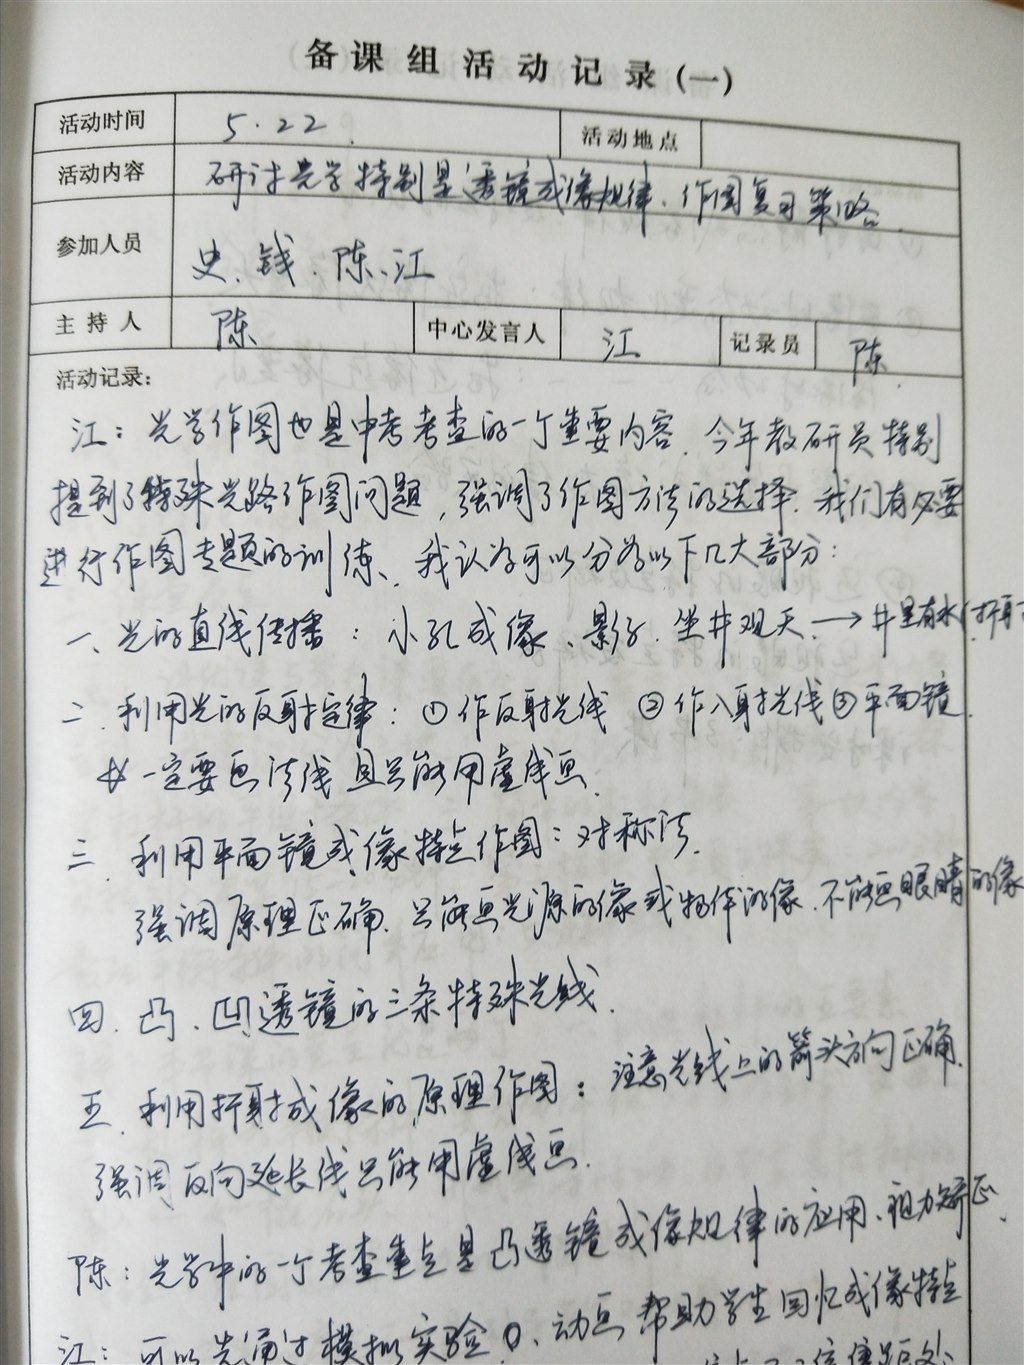 备课组活动记录(一)
活动时间 5.22 活动地点
活动内容 研讨光学特别是透镜成像规律、作图复习策略
参加人员 史、钱、陈、江
主持人 陈 中心发言人 江 记录员 陈
活动记录:
江：光学作图也是中考考查的一个重要内容，今年教研员特别
提到了特殊光路作图问题，强调了作图方法的选择．我们有必要
进行作图专题的训练、我认为可以分为以下几大部分：
一、光的直线传播：小孔成像、影子．坐井观天→井里有水(折射
二．利用光的反射定律：①作反射光线 ②作入射光线③平面镜
一定要画法线 且只能用虚线画．
三．利用平面镜成像特点作图：对称法．
强调原理正确．只能画光源的像或物体的像．不能画眼睛的像
四．凸、凹透镜的三条特殊光线．
五．利用折射成像的原理作图：注意光线上的箭头方向正确．
强调反向延长线只能用虚线画．
陈：光学中的一个考查重点是凸透镜成像规律的应用、视力矫正、
江：可以先通过模拟实验、动画帮助学生回忆成像特点